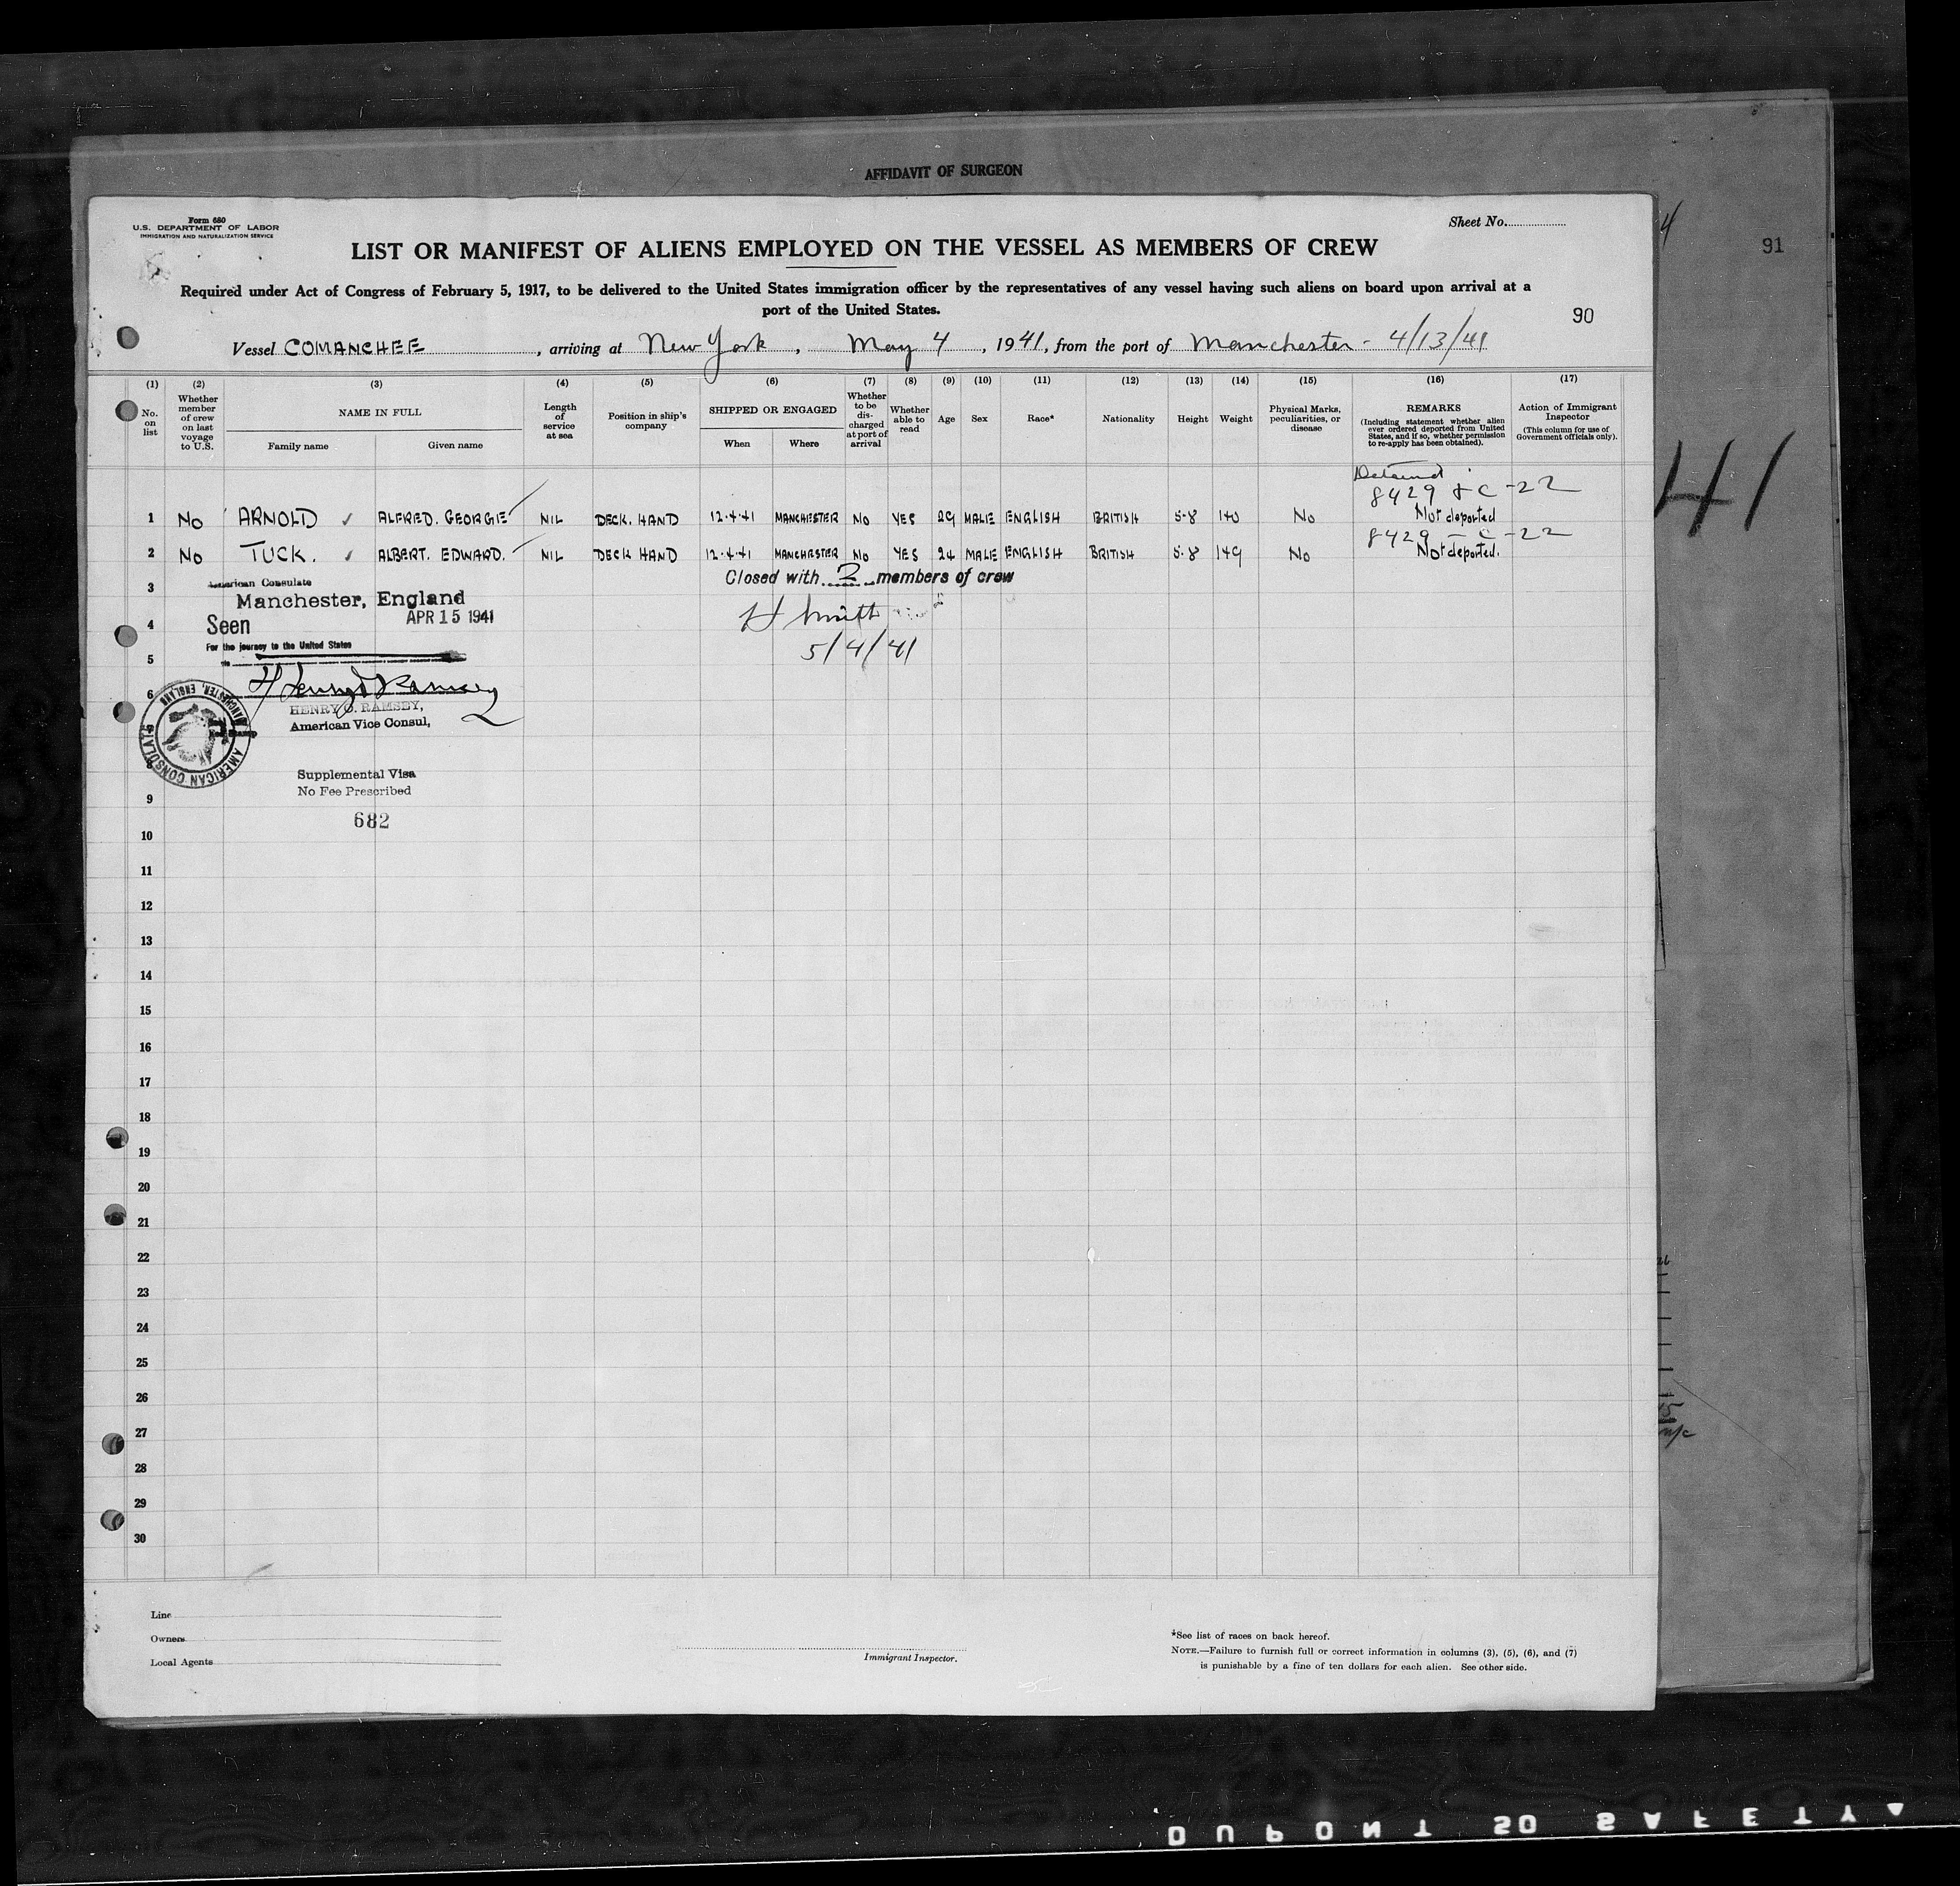 AFFIDAVIT OF SURGEON
Form 680
U.S. DEPARTMENT OF LABOR
IMMIGRATION AND NATURALIZATION SERVICE
Sheet No.
4
91
LIST OR MANIFEST OF ALIENS EMPLOYED ON THE VESSEL AS MEMBERS OF CREW
Required under Act of Congress of February 5, 1917, to be delivered to the United States immigration officer by the representatives of any vessel having such aliens on board upon arrival at a
port of the United States.
90
Vessel COMANCHEE, arriving at New York, May 4, 1941, from the port of Manchester - 4/13/41
(1) (2) (3) (4) (5) (6) (7) (8) (9) (10) (11) (12) (13) (14) (15) (16) (17)
No. on list
Whether member of crew on last voyage to U.S.
NAME IN FULL
Family name Given name
Length of service at sea
Position in ship's company
SHIPPED OR ENGAGED
When Where
Whether to be discharged at port of arrival
Whether able to read
Age
Sex
Race*
Nationality
Height
Weight
Physical Marks, peculiarities, or disease
REMARKS
(Including statement whether alien ever ordered deported from United States, and if so, whether permission to re-apply has been obtained).
Action of Immigrant Inspector
(This column for use of Government officials only).
41
Detained
8429 & C-22
1 No ARNOLD ✓ ALFRED. GEORGE NIL DECK. HAND 12.4.41 MANCHESTER NO YES 29 MALE ENGLISH BRITISH 5-8 140 No Not deported
8429 - C-22
2 No TUCK. ✓ ALBERT. EDWARD. NIL DECK HAND 12.4.41 MANCHESTER NO YES 24 MALE ENGLISH BRITISH 5-8 149 No Not deported.
3
Closed with 2 members of crew
American Consulate
Manchester, England
4
Seen APR 15 1941
H Smith
For the journey to the United States
5
5/4/41
6
Henry O Ramsey
HENRY O. RAMSEY,
American Vice Consul,
AMERICAN CONSULATE
MANCHESTER, ENGLAND
8
Supplemental Visa
No Fee Prescribed
9
682
10
11
12
13
14
15
16
17
18
19
20
21
22
23
24
25
26
27
28
29
30
Line
Owners
Local Agents
Immigrant Inspector.
*See list of races on back hereof.
NOTE.—Failure to furnish full or correct information in columns (3), (5), (6), and (7)
is punishable by a fine of ten dollars for each alien. See other side.
DUPONT SO SAFETY